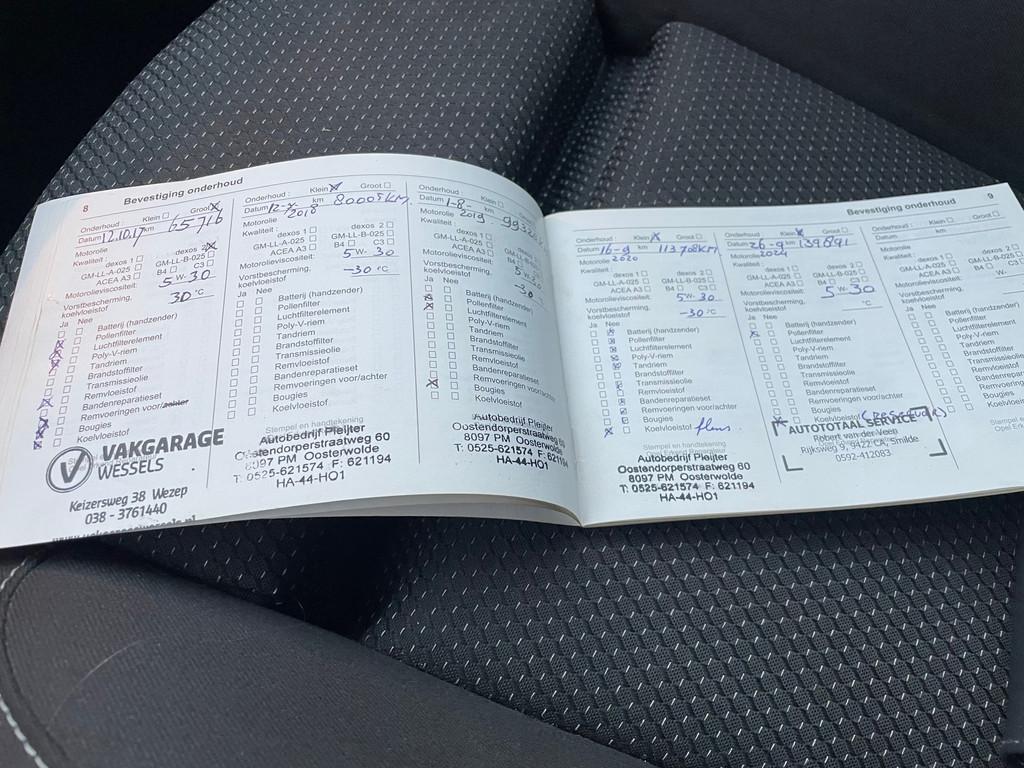 8
Bevestiging onderhoud
Onderhoud : Klein Groot
Datum 12.10.17 km 65716
Motorolie
Kwaliteit : dexos 1 dexos 2
GM-LL-A-025 GM-LL-B-025
ACEA A3 B4 C3
Motorolieviscositeit: 5 W- 30
Vorstbescherming,
koelvloeistof 30 °C
Ja Nee
Batterij (handzender)
Pollenfilter
Luchtfilterelement
Poly-V-riem
Tandriem
Brandstoffilter
Transmissieolie
Remvloeistof
Bandenreparatieset
Remvoeringen voor/achter
Bougies
Koelvloeistof
VAKGARAGE
WESSELS
Keizersweg 38 Wezep
038 - 3761440
Onderhoud : Klein Groot
Datum km 80005 KM
2018
Motorolie
Kwaliteit : dexos 1 dexos 2
GM-LL-A-025 GM-LL-B-025
ACEA A3 B4 C3
Motorolieviscositeit: 5 W- 30
Vorstbescherming, -30 °C
koelvloeistof
Ja Nee
Batterij (handzender)
Pollenfilter
Luchtfilterelement
Poly-V-riem
Tandriem
Brandstoffilter
Transmissieolie
Remvloeistof
Bandenreparatieset
Remvoeringen voor/achter
Bougies
Koelvloeistof
Stempel en handtekening
Autobedrijf Pleijter
Oostendorperstraatweg 60
8097 PM Oosterwolde
T: 0525-621574 F: 621194
HA-44-HO1
Onderhoud : Klein Groot
Datum 1-8- km
2019
Motorolie
Kwaliteit : dexos 1
GM-LL-A-025
ACEA A3
Motorolieviscositeit:
Vorstbescherming,
koelvloeistof
Ja Nee
Batterij (handzender)
Pollenfilter
Luchtfilterelement
Poly-V-riem
Tandriem
Brandstoffilter
Transmissieolie
Remvloeistof
Bandenreparatieset
Remvoeringen voor/achter
Bougies
Koelvloeistof
Autobedrijf Pleijter
Oostendorperstraatweg 60
8097 PM Oosterwolde
T: 0525-621574 F: 621194
HA-44-HO1
Bevestiging onderhoud
9
Onderhoud : Klein Groot
Datum 16-9 km 113708KM
Motorolie 2020
Kwaliteit : dexos 1 dexos 2
GM-LL-A-025 GM-LL-B-025
ACEA A3 B4 C3
Motorolieviscositeit: 5W- 30
Vorstbescherming,
koelvloeistof -30 °C
Ja Nee
Batterij (handzender)
Pollenfilter
Luchtfilterelement
Poly-V-riem
Tandriem
Brandstoffilter
Transmissieolie
Remvloeistof
Bandenreparatieset
Remvoeringen voor/achter
Bougies
Koelvloeistof
Stempel en handtekening
Autobedrijf Pleijter
Oostendorperstraatweg 60
8097 PM Oosterwolde
T: 0525-621574 F: 621194
HA-44-HO1
Onderhoud : Klein Groot
Datum 26-9 km 139891
Motorolie 2024
Kwaliteit : dexos 1 dexos 2
GM-LL-A-025 GM-LL-B-025
ACEA A3 B4 C3
Motorolieviscositeit: 5 W- 30
Vorstbescherming,
koelvloeistof °C
Ja Nee
Batterij (handzender)
Pollenfilter
Luchtfilterelement
Poly-V-riem
Tandriem
Brandstoffilter
Transmissieolie
Remvloeistof
Bandenreparatieset
Remvoeringen voor/achter
Bougies
Koelvloeistof
AUTOTOTAAL SERVICE
Robert van der Veen
Rijksweg 9, 9422 CA, Smilde
0592-412083
Onderhoud : Klein Groot
Datum km
Motorolie
Kwaliteit : dexos 1
GM-LL-A-025
ACEA A3
Motorolieviscositeit:
Vorstbescherming,
koelvloeistof
Ja Nee
Batterij (handzender)
Pollenfilter
Luchtfilterelement
Poly-V-riem
Tandriem
Brandstoffilter
Transmissieolie
Remvloeistof
Bandenreparatieset
Bougies